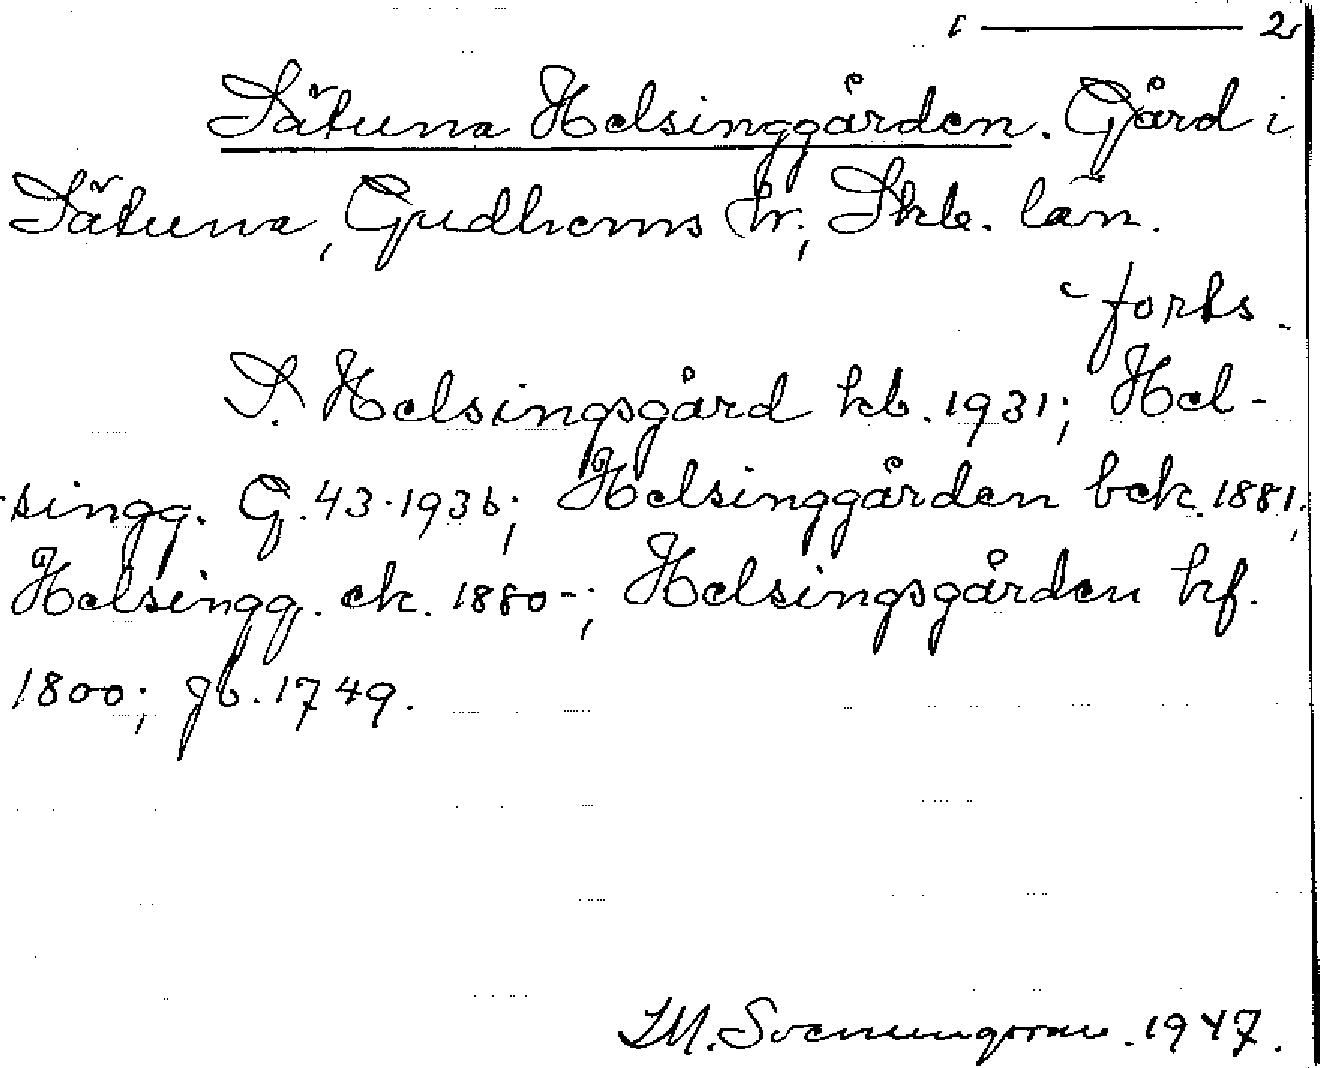 1 — 2
Sätuna Helsinggården. Gård i
Sätuna, Gudhems hr, Skb. län.
forts.
S. Helsingsgård kb. 1931; Hel-
singg. G. 43. 1936; Helsinggården bek. 1881;
Helsingg. ek. 1880-; Helsingsgården hf.
1800; jb. 1749.
I.M. Svenungsson. 1947.